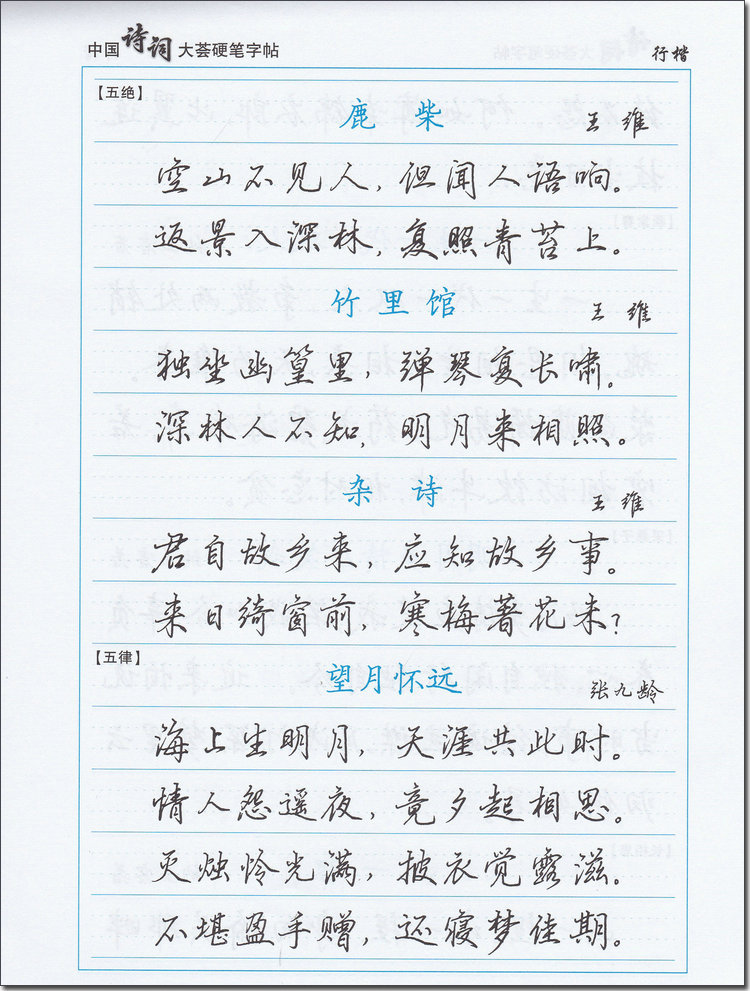 中国诗词大荟硬笔字帖 行楷
【五绝】
鹿柴 王维
空山不见人，但闻人语响。
返景入深林，复照青苔上。
竹里馆 王维
独坐幽篁里，弹琴复长啸。
深林人不知，明月来相照。
杂诗 王维
君自故乡来，应知故乡事。
来日绮窗前，寒梅著花未？
【五律】
望月怀远 张九龄
海上生明月，天涯共此时。
情人怨遥夜，竟夕起相思。
灭烛怜光满，披衣觉露滋。
不堪盈手赠，还寝梦佳期。